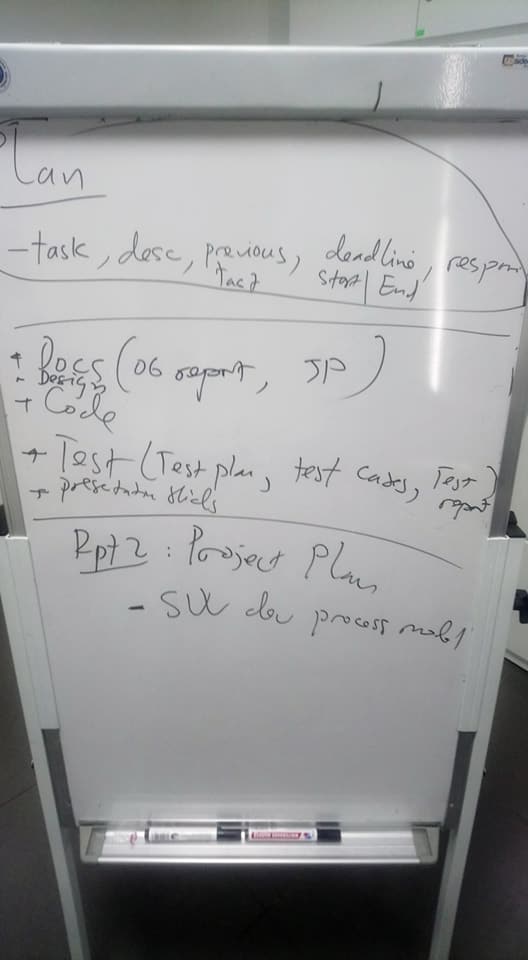 Plan
- task, desc, previous, deadline, respon
task start / End
+ Docs (06 report, JP)
- Design
+ Code
+ Test (Test plan, test cases, Test report)
+ slids
Rpt2 : Project Plan
- SW dev process model